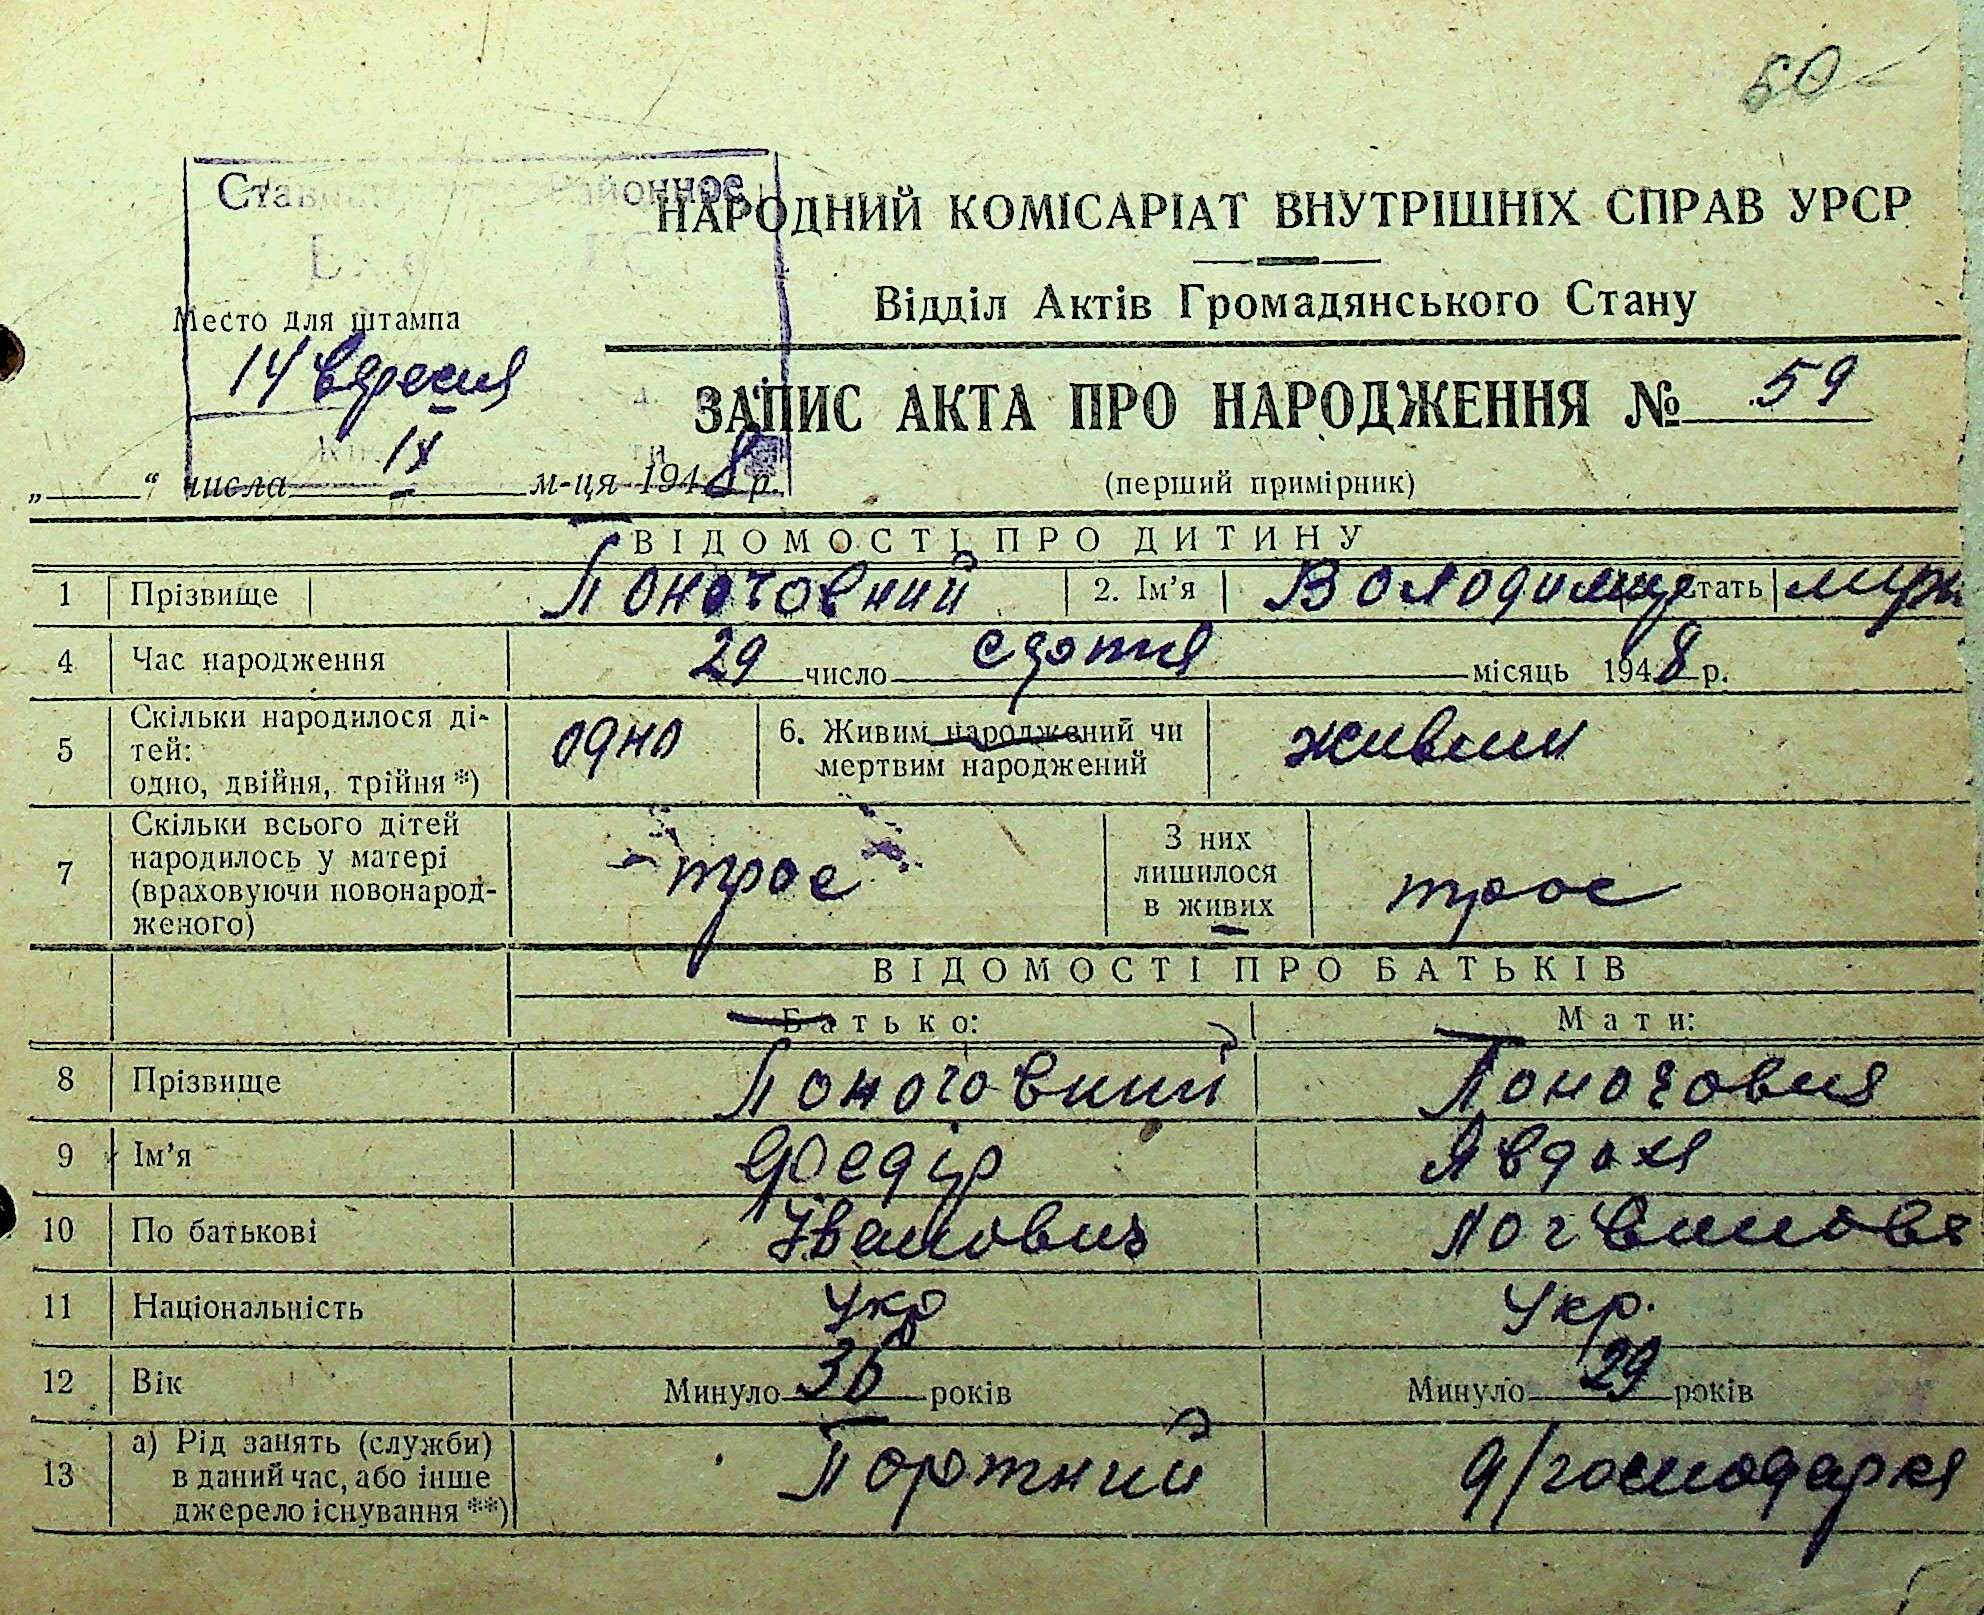 50
Районное
НАРОДНИЙ КОМІСАРІАТ ВНУТРІШНІХ СПРАВ УРСР
Відділ Актів Громадянського Стану
Место для штампа
14 вересня
ЗАПИС АКТА ПРО НАРОДЖЕННЯ № 59
„ “ числа IX м-ця 1948 р.
(перший примірник)
ВІДОМОСТІ ПРО ДИТИНУ
1 Прізвище Поночовний 2. Ім’я Володимир стать
4 Час народження 29 число серпня місяць 1948 р.
5 Скільки народилося ді-
тей:
одно, двійня, трійня *)
одно
6. Живим народжений чи
мертвим народжений
живим
7 Скільки всього дітей
народилось у матері
(враховуючи новонарод-
женого)
троє
З них
лишилося
в живих
троє
ВІДОМОСТІ ПРО БАТЬКІВ
Батько: Мати:
8 Прізвище Поночовний Поночовня
9 Ім’я Федір Явдоня
10 По батькові Іванович Логвиновн
11 Національність Укр Укр.
12 Вік Минуло 36 років Минуло 29 років
13 а) Рід занять (служби)
в даний час, або інше
джерело існування **)
Портний
д/господарка